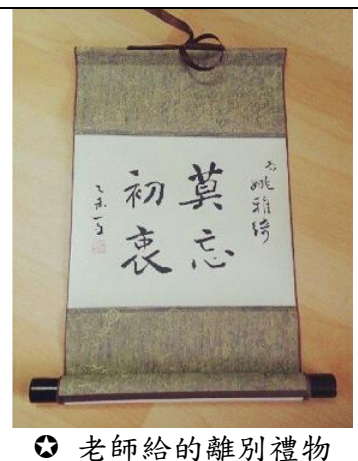 姚雅綺
莫忘
初衷
✪ 老師給的離別禮物